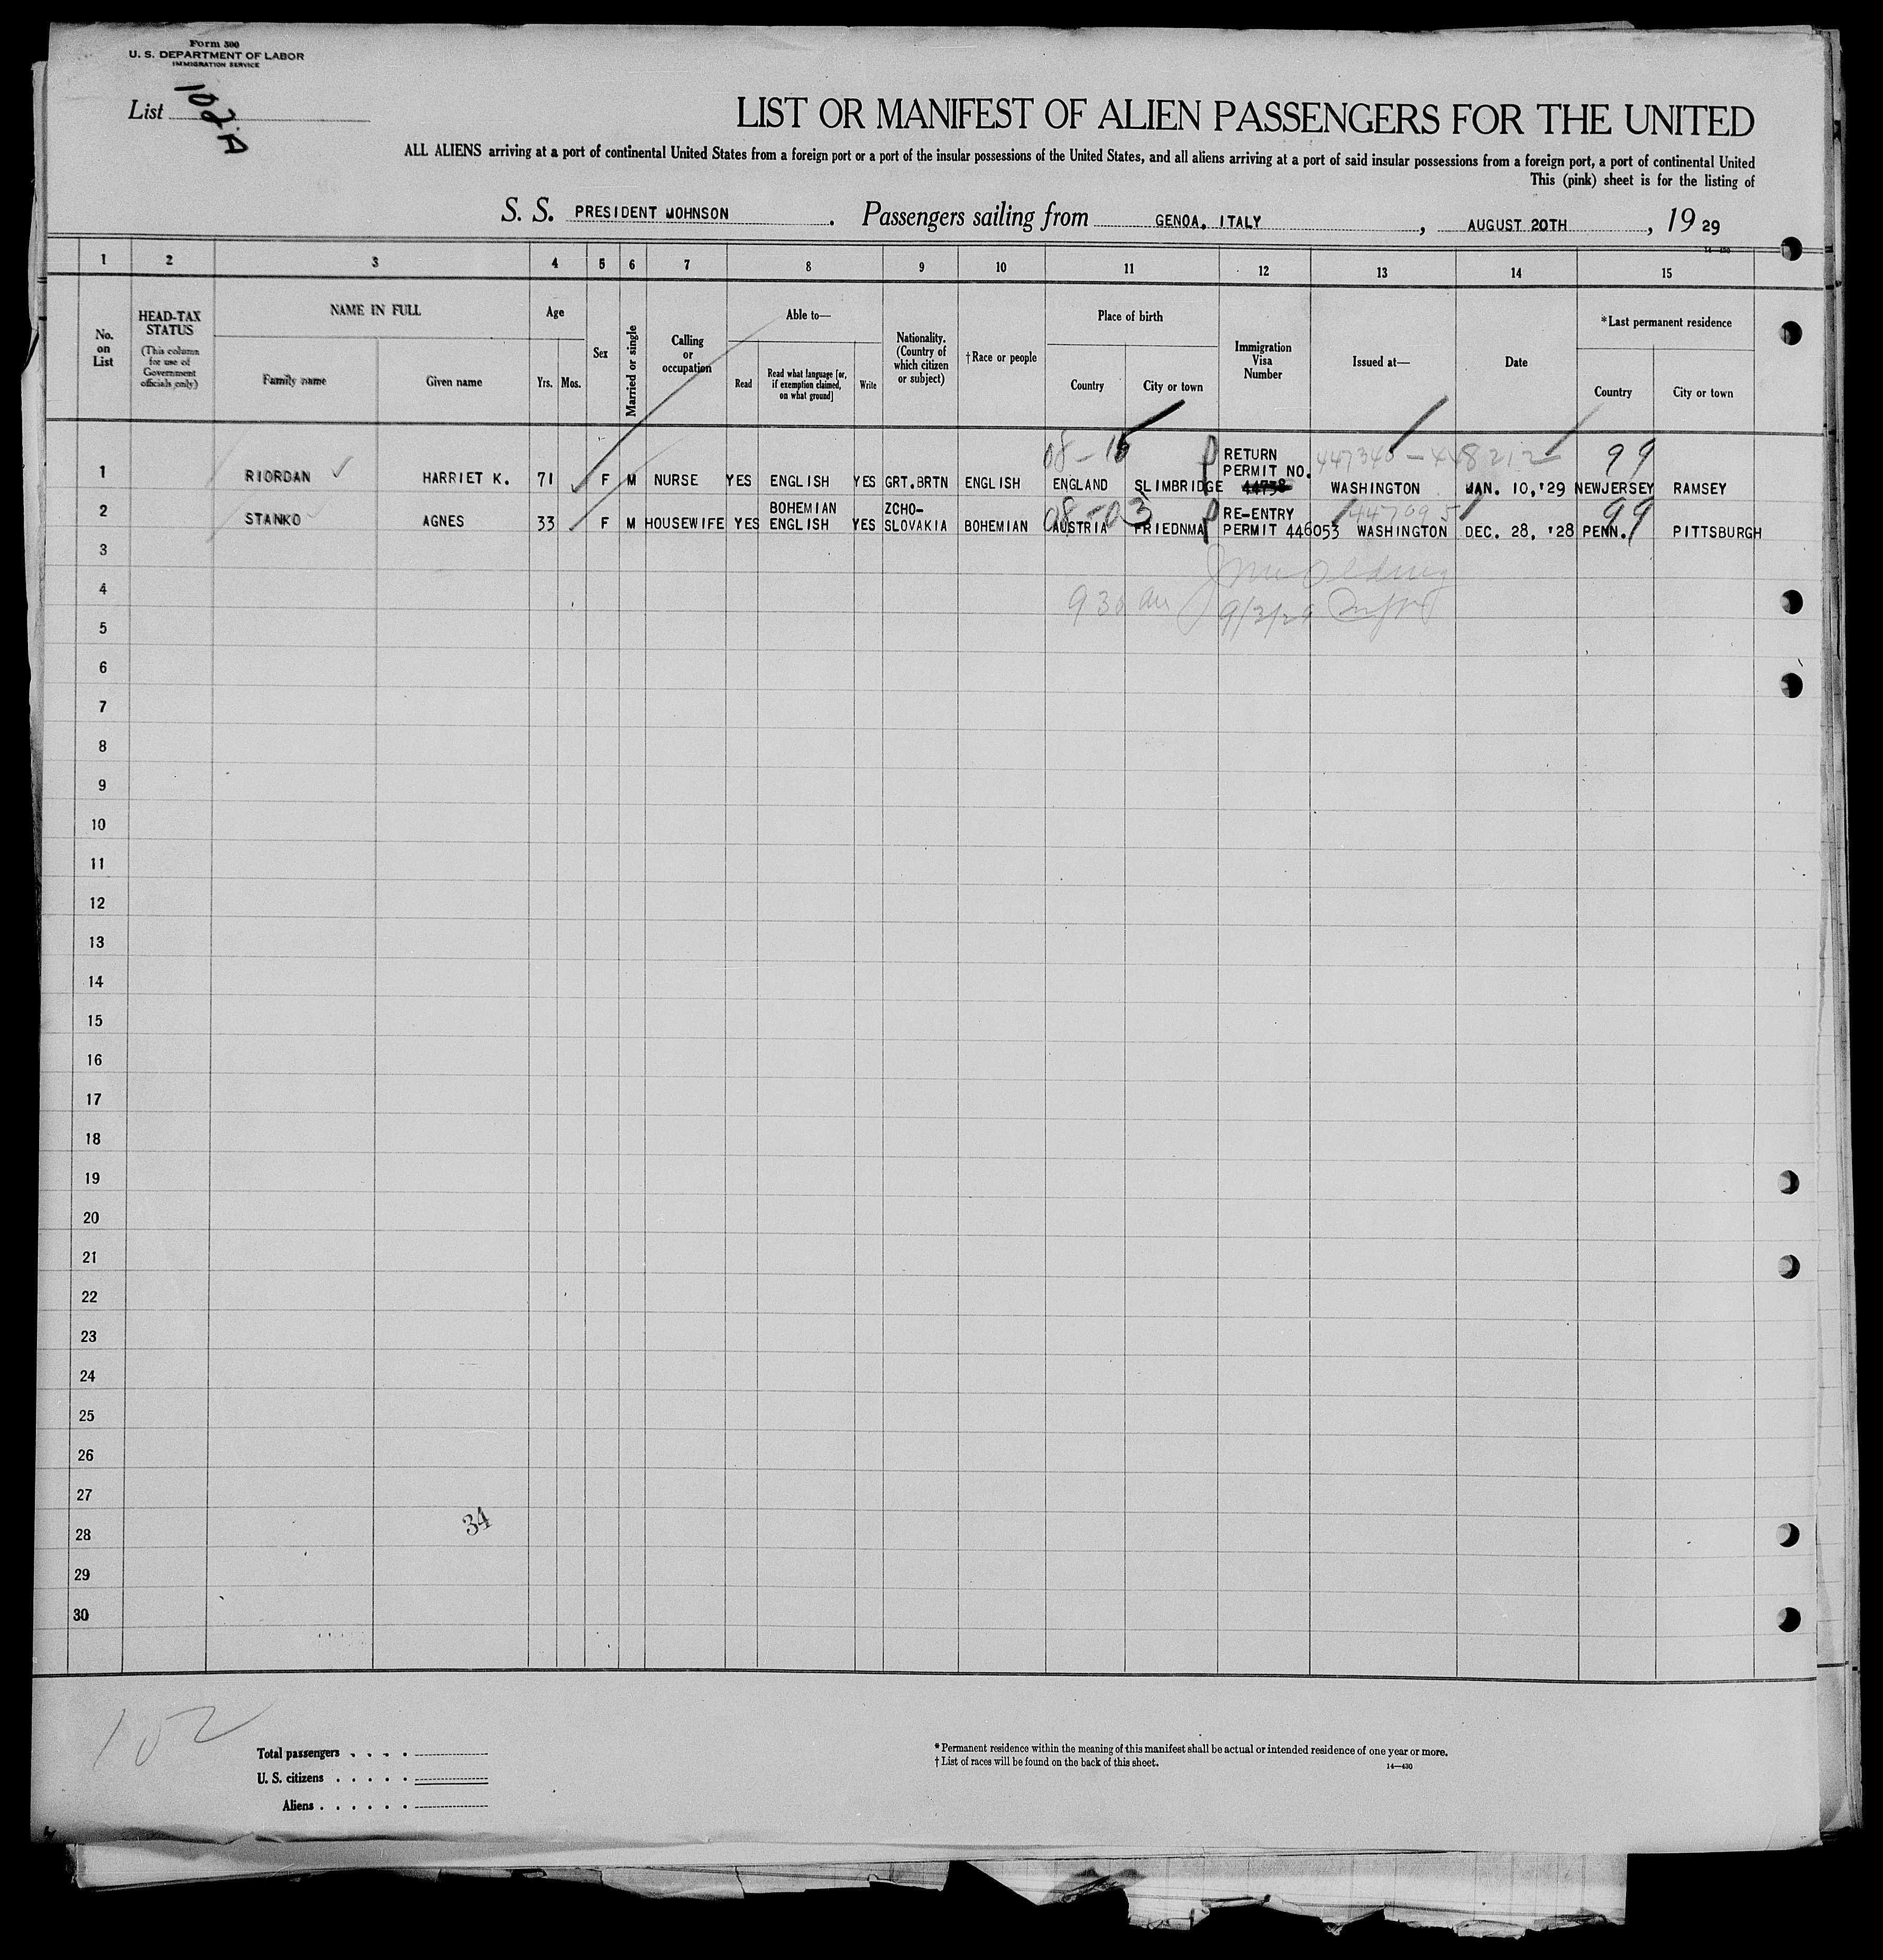 Form 500
U. S. DEPARTMENT OF LABOR
IMMIGRATION SERVICE
List 102A
LIST OR MANIFEST OF ALIEN PASSENGERS FOR THE UNITED
ALL ALIENS arriving at a port of continental United States from a foreign port or a port of the insular possessions of the United States, and all aliens arriving at a port of said insular possessions from a foreign port, a port of continental United
This (pink) sheet is for the listing of
S. S. PRESIDENT MOHNSON. Passengers sailing from GENOA, ITALY, AUGUST 20TH, 19 29
14-430
1 2 3 4 5 6 7 8 9 10 11 12 13 14 15
No. on List
HEAD-TAX STATUS
(This column for use of Government officials only)
NAME IN FULL
Family name
Given name
Age
Yrs. Mos.
Sex
Married or single
Calling or occupation
Able to—
Read
Read what language [or, if exemption claimed, on what ground]
Write
Nationality. (Country of which citizen or subject)
†Race or people
Place of birth
Country
City or town
Immigration Visa Number
Issued at—
Date
*Last permanent residence
Country
City or town
08-16 P RETURN 447340-448212 99
PERMIT NO.
1 RIORDAN HARRIET K. 71 F M NURSE YES ENGLISH YES GRT.BRTN ENGLISH ENGLAND SLIMBRIDGE WASHINGTON JAN. 10,'29 NEWJERSEY RAMSEY
BOHEMIAN ZCHO- 08-03 P RE-ENTRY 447095 99
2 STANKO AGNES 33 F M HOUSEWIFE YES ENGLISH YES SLOVAKIA BOHEMIAN AUSTRIA FRIEDNMA PERMIT 446053 WASHINGTON DEC. 28, '28 PENN. PITTSBURGH
3
4
930 am 9/3/29
5
6
7
8
9
10
11
12
13
14
15
16
17
18
19
20
21
22
23
24
25
26
27
34
28
29
30
102
Total passengers . . . .
U. S. citizens . . . . .
Aliens . . . . . .
* Permanent residence within the meaning of this manifest shall be actual or intended residence of one year or more.
† List of races will be found on the back of this sheet.
14—430